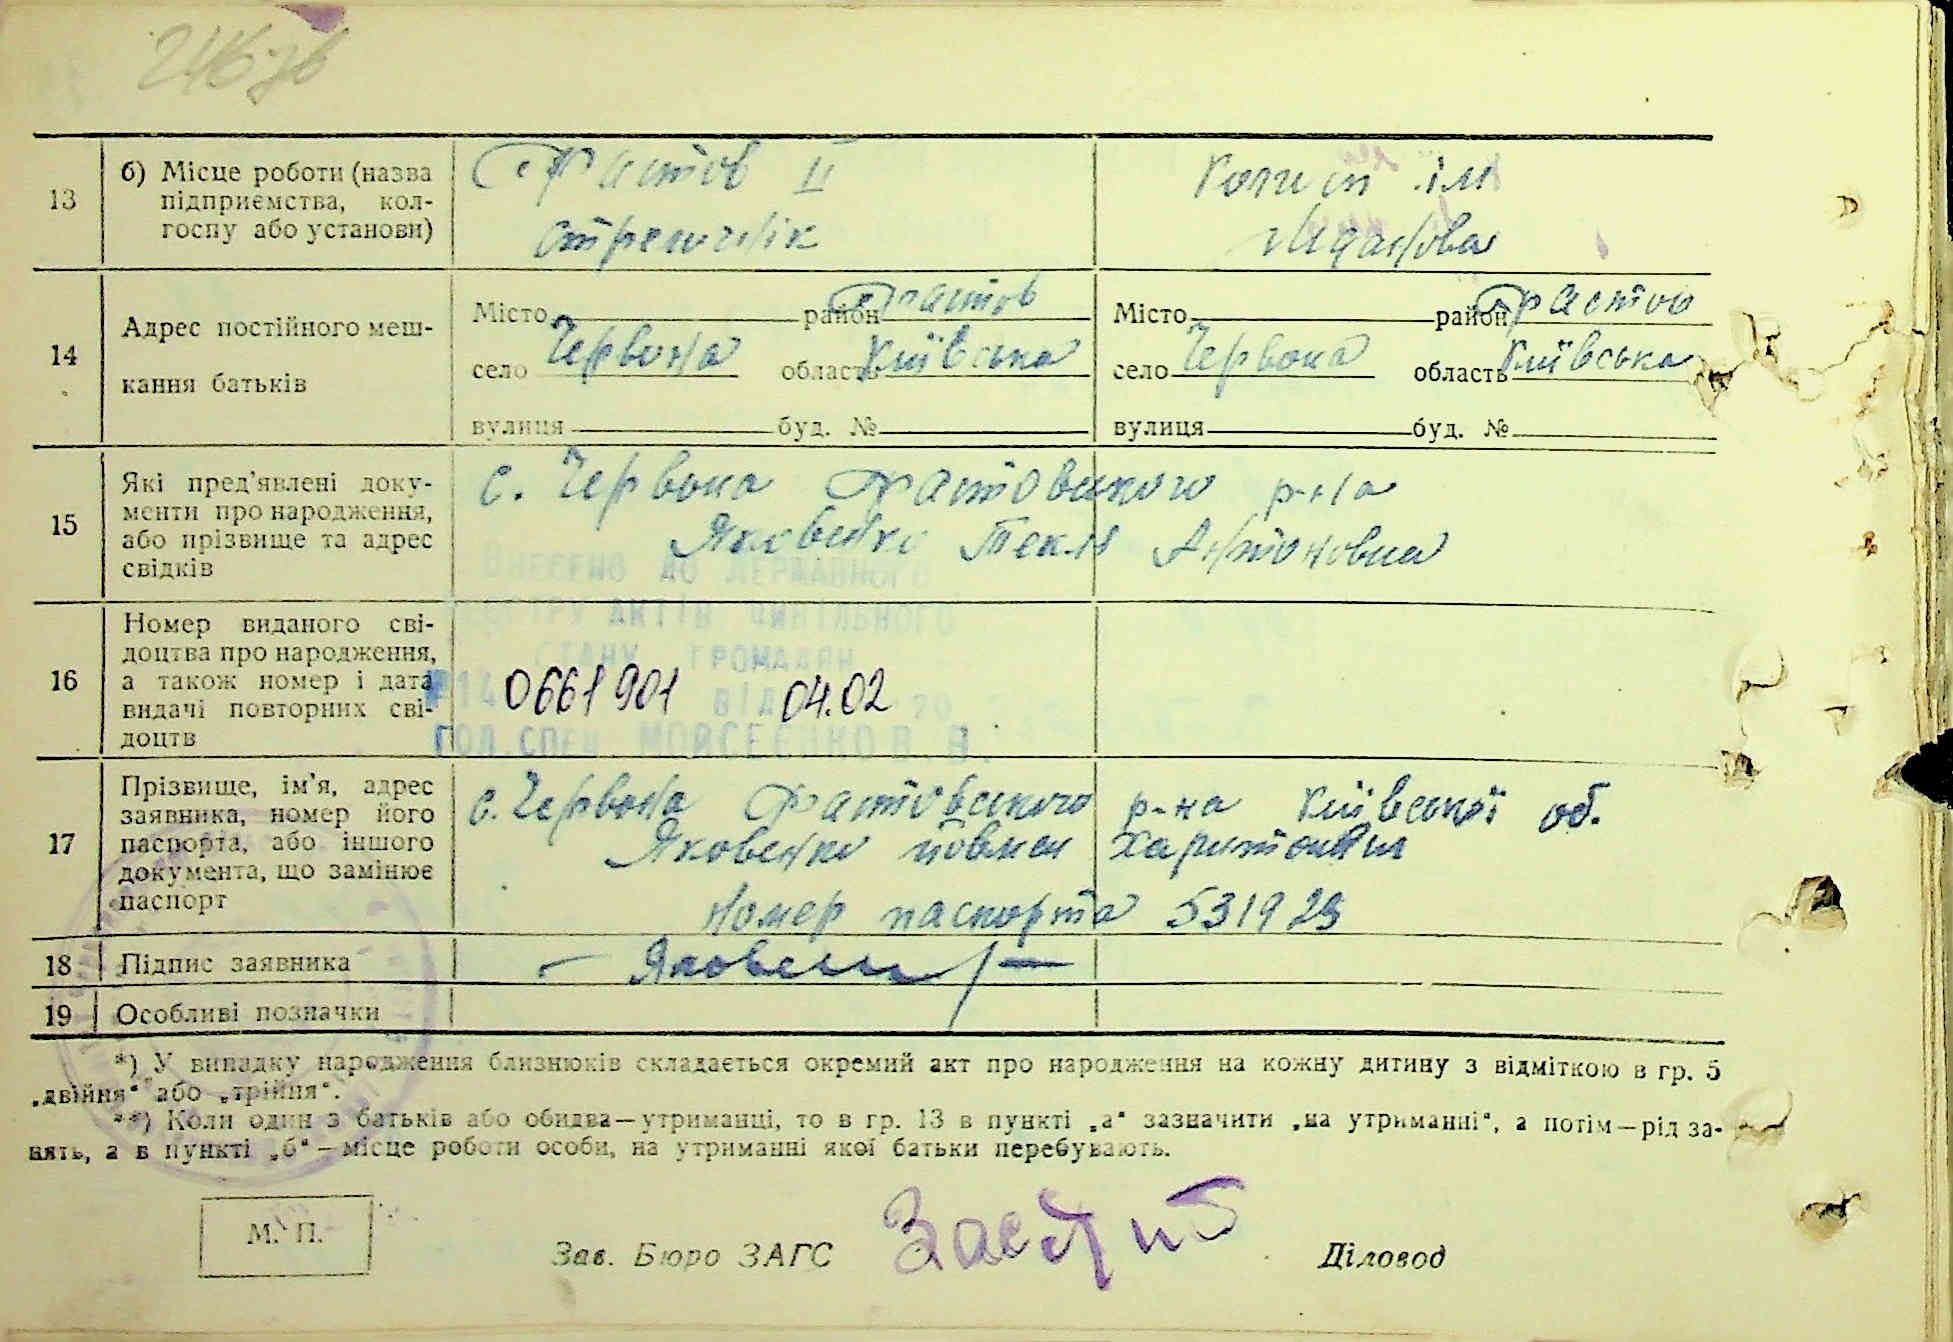 246 зв
13
б) Місце роботи (назва
підприємства, кол-
госпу або установи)
Фастов II
стрелочнік
Колгосп ім
Жданова
14
Адрес постійного меш-
кання батьків
Місто район Фастов
село Червона область Київська
вулиця буд. №
Місто район Фастов
село Червона область Київська
вулиця буд. №
15
Які пред'явлені доку-
менти про народження,
або прізвище та адрес
свідків
с. Червона Фастовского р-на
Яковенко Текля Антоновна
16
Номер виданого сві-
доцтва про народження,
а також номер і дата
видачі повторних сві-
доцтв
Внесено до Державного
реєстру актів цивільного
стану громадян
№14 0661901 від 04.02 20
гол. спец. Моисеєнко В. В.
17
Прізвище, ім'я, адрес
заявника, номер його
паспорта, або іншого
документа, що замінює
паспорт
с. Червона Фастовського р-на Київської об.
Яковенко Харитон
Номер паспорта 531923
18
Підпис заявника
Яковенко
19
Особливі позначки
*) У випадку народження близнюків складається окремий акт про народження на кожну дитину з відміткою в гр. 5
„двійня“ або „трійня“.
**) Коли один з батьків або обидва—утриманці, то в гр. 13 в пункті „а“ зазначити „на утриманні“, а потім—рід за-
нять, а в пункті „б“—місце роботи особи, на утриманні якої батьки перебувають.
М. П.
Зав. Бюро ЗАГС
Діловод